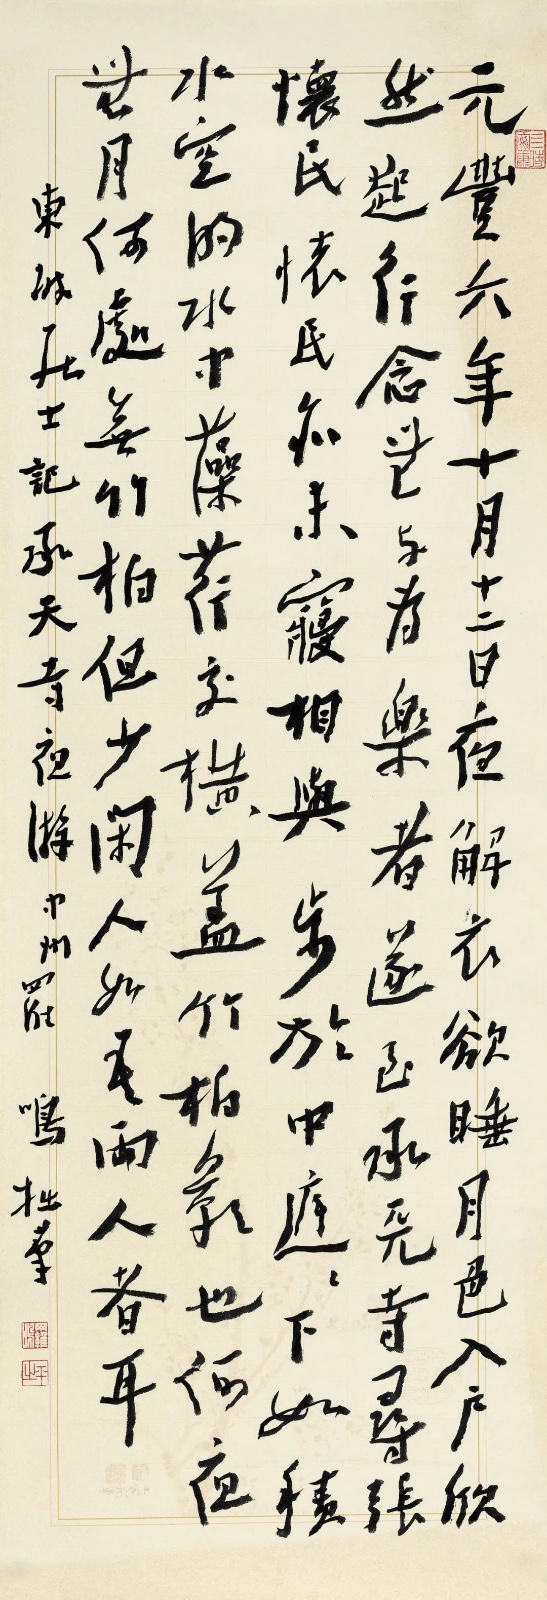 元豐六年十月十二日夜解衣欲睡月色入户欣
然起行念無与為樂者遂至承天寺尋張
懷民懷民亦未寢相與步於中庭〻下如積
水空明水中藻荇交橫蓋竹柏影也何夜
無月何處無竹柏但少閑人如吾兩人者耳
東坡居士記承天寺夜游中州羅鳴拙筆